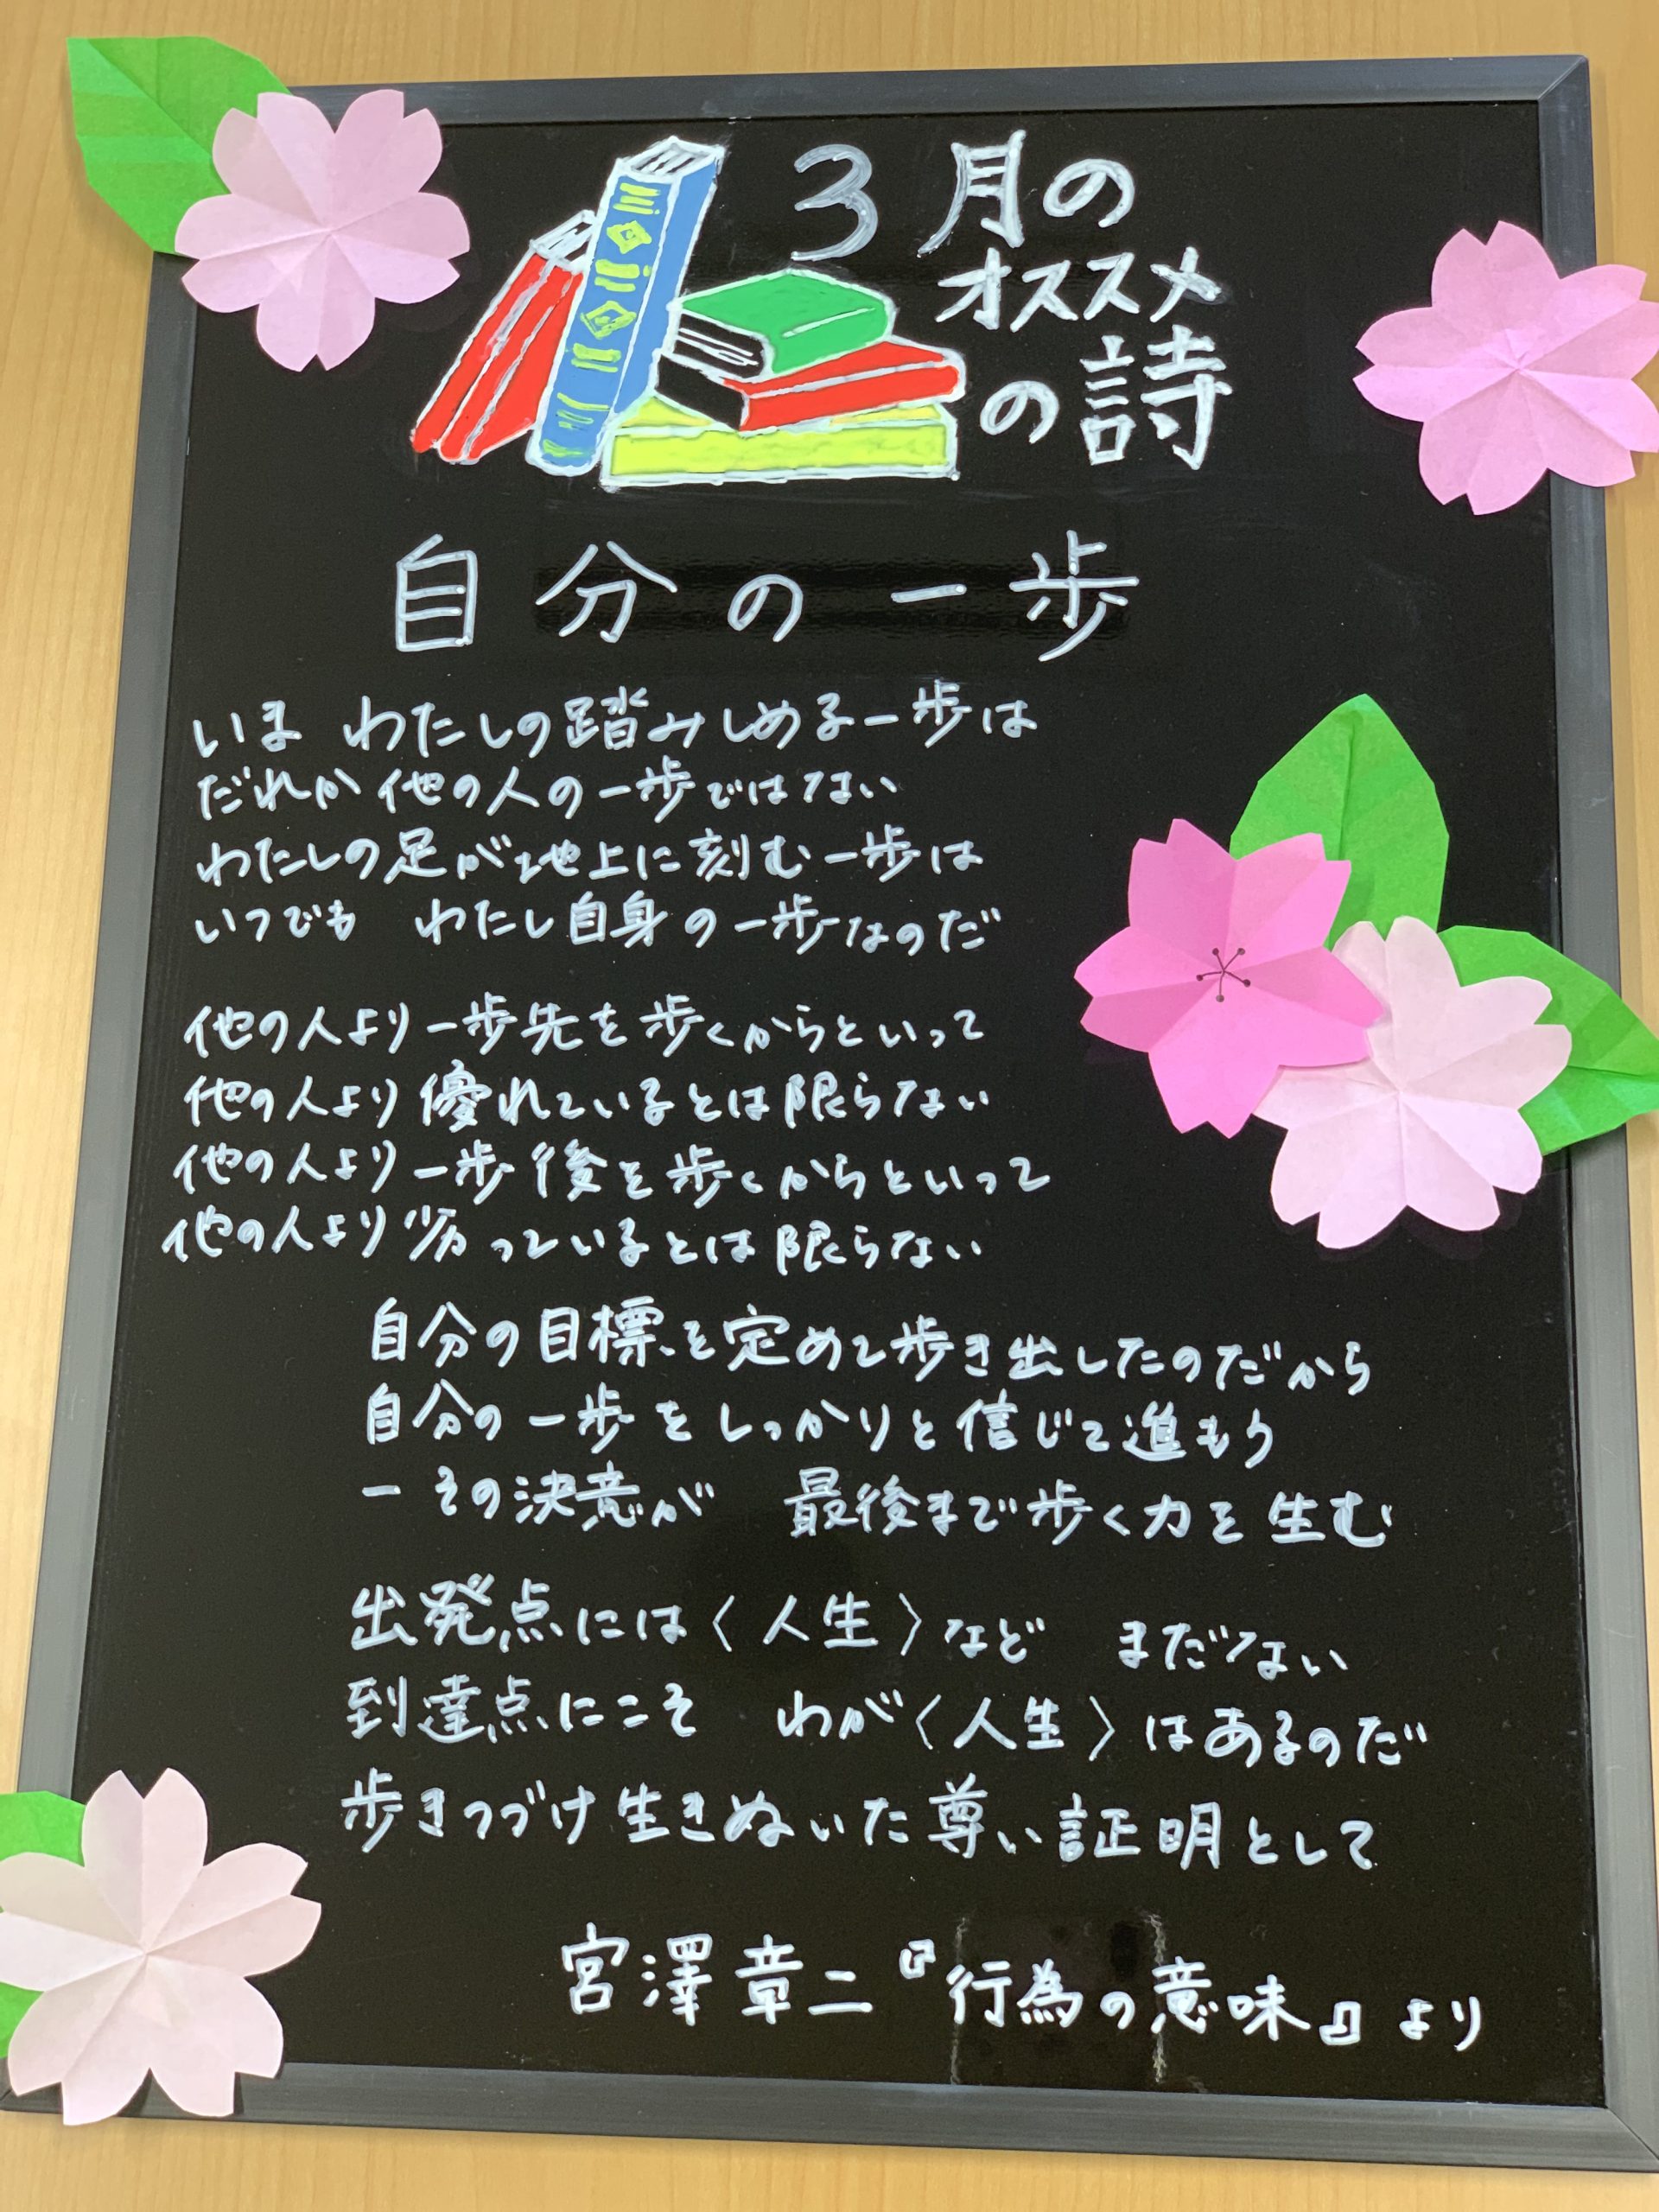 3月の
オススメ
の詩
自分の一歩
いま　わたしの踏みしめる一歩は
だれか他の人の一歩ではない
わたしの足が地上に刻む一歩は
いつでも　わたし自身の一歩なのだ
他の人より一歩先を歩くからといって
他の人より優れているとは限らない
他の人より一歩後を歩くからといって
他の人より劣っているとは限らない
自分の目標を定めて歩き出したのだから
自分の一歩をしっかりと信じて進もう
ーその決意が　最後まで歩く力を生む
出発点には〈人生〉など　まだない
到達点にこそ　わが〈人生〉はあるのだ
歩きつづけ生きぬいた尊い証明として
宮澤章二『行為の意味』より